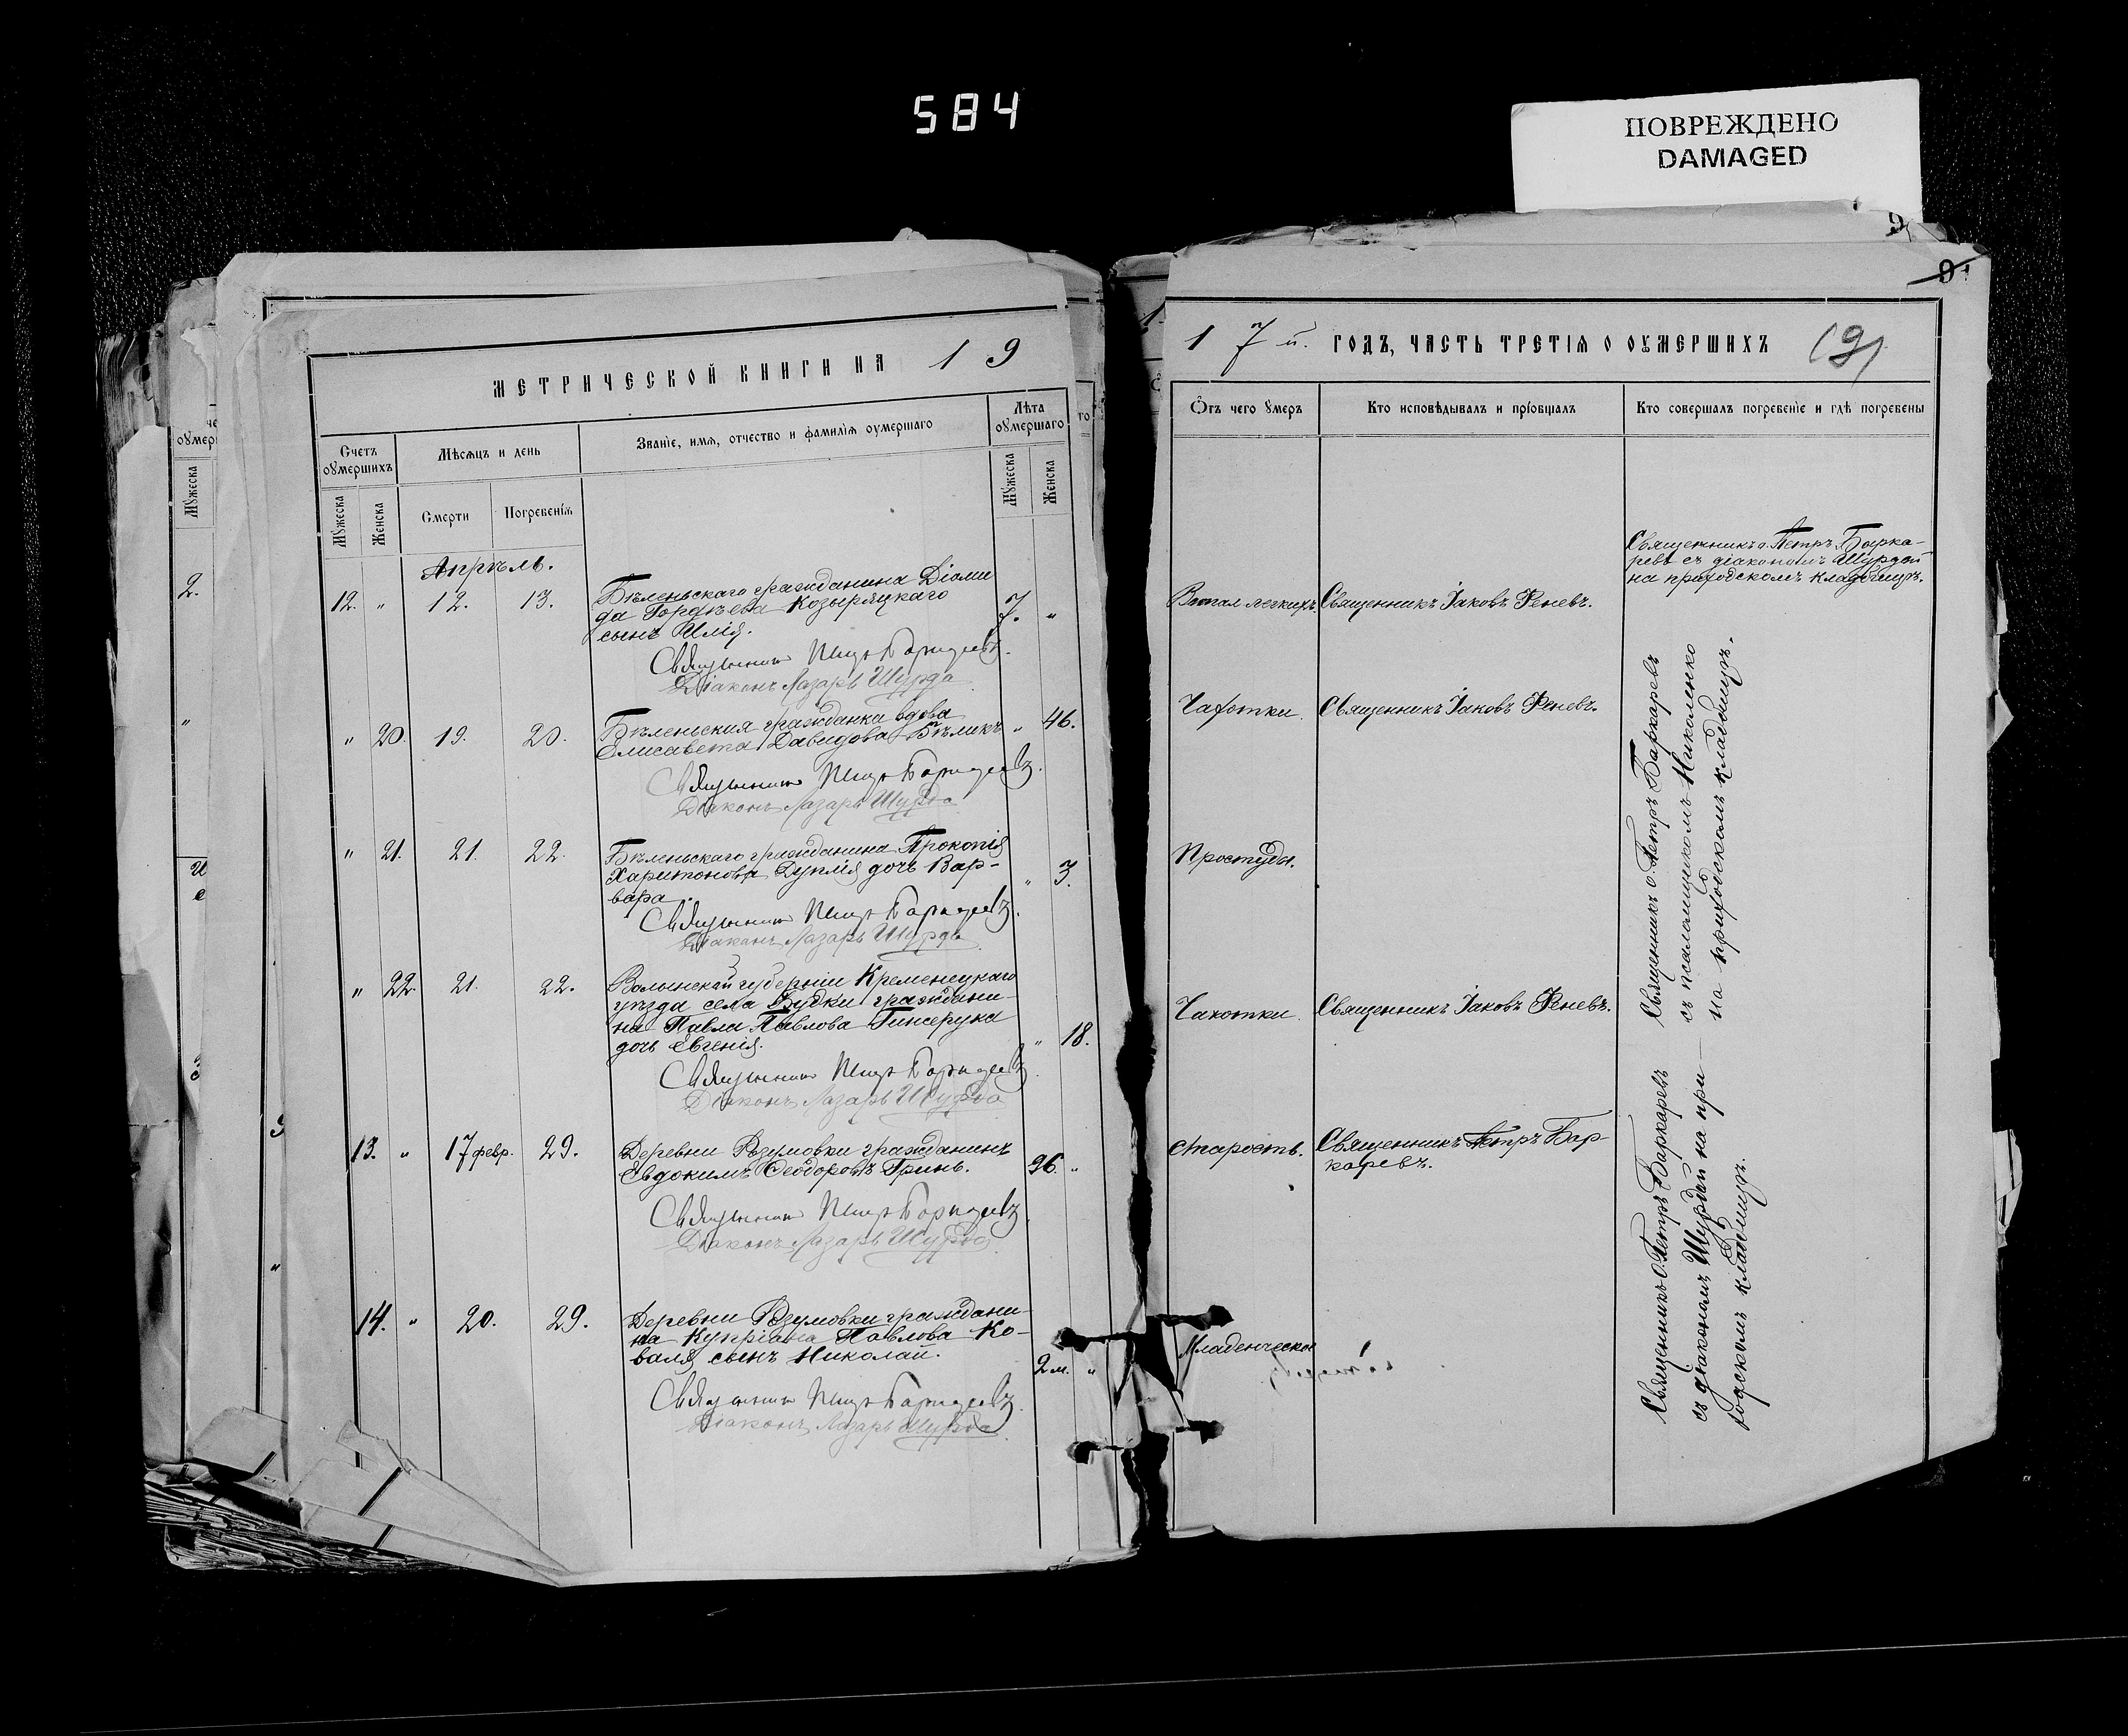 584
ПОВРЕЖДЕНО
DAMAGED
МЕТРИЧЕСКОЙ КНИГИ НА 19
Счетъ оумершихъ
Мѣсяцъ и день
Званіе, имя, отчество и фамилія оумершаго
Лѣта оумершаго
Мужеска
Женска
Смерти
Погребенія
Мужеска
Женска
Апрѣль.
12. " 12. 13.
Бѣленьскаго гражданина Діоми
да Гордѣева Козыряцкаго
сынъ Илія.
7. "
Священникъ Петръ Баркаревъ.
Діаконъ Лазарь Шурда
" 20. 19. 20.
Бѣленьская гражданка вдова
Елисавета Давидова Бѣликъ
" 46.
Священникъ Петръ Баркаревъ.
Діаконъ Лазарь Шурда
" 21. 21. 22.
Бѣленьскаго гражданина Прокопія
Харитонова Дуплія дочь Вар-
вара.
" 3.
Священникъ Петръ Баркаревъ.
Діаконъ Лазарь Шурда
" 22. 21. 22.
Волынской губерніи Кременецкаго
уѣзда села Будки граждани-
на Павла Павлова Гинсерука
дочь Евгенія.
" 18.
Священникъ Петръ Баркаревъ.
Діаконъ Лазарь Шурда
13. " 17 февр. 29.
Деревни Розумовки гражданинъ
Евдокимъ Ѳеодоровъ Гринь.
96. "
Священникъ Петръ Баркаревъ
Діаконъ Лазарь Шурда
14. " 20. 29.
Деревни Розумовки граждани-
на Купріана Павлова Ко-
валя сынъ Николай.
2 м. "
Священникъ Петръ Баркаревъ.
Діаконъ Лазарь Шурда
9
9
17 й. ГОДЪ, ЧАСТЬ ТРЕТІЯ О ОУМЕРШИХЪ
Отъ чего умеръ
Кто исповѣдывалъ и пріобщалъ
Кто совершалъ погребеніе и гдѣ погребены
Воспал. легкихъ.
Священникъ Іаковъ Феневъ.
Священникъ о. Петръ Барка-
ревъ съ діакономъ Шурдой
на приходскомъ кладбищѣ.
Чахотки.
Священникъ Іаковъ Феневъ.
Простуды.
Чахотки.
Священникъ Іаковъ Феневъ.
Священникъ о. Петръ Баркаревъ
съ псаломщикомъ Николенко
на приходскомъ кладбищѣ.
Старость.
Священникъ Петръ Бар-
каревъ.
Младенческой
Священникъ о. Петръ Баркаревъ
съ діакономъ Шурдой на при-
ходскомъ кладбищѣ.